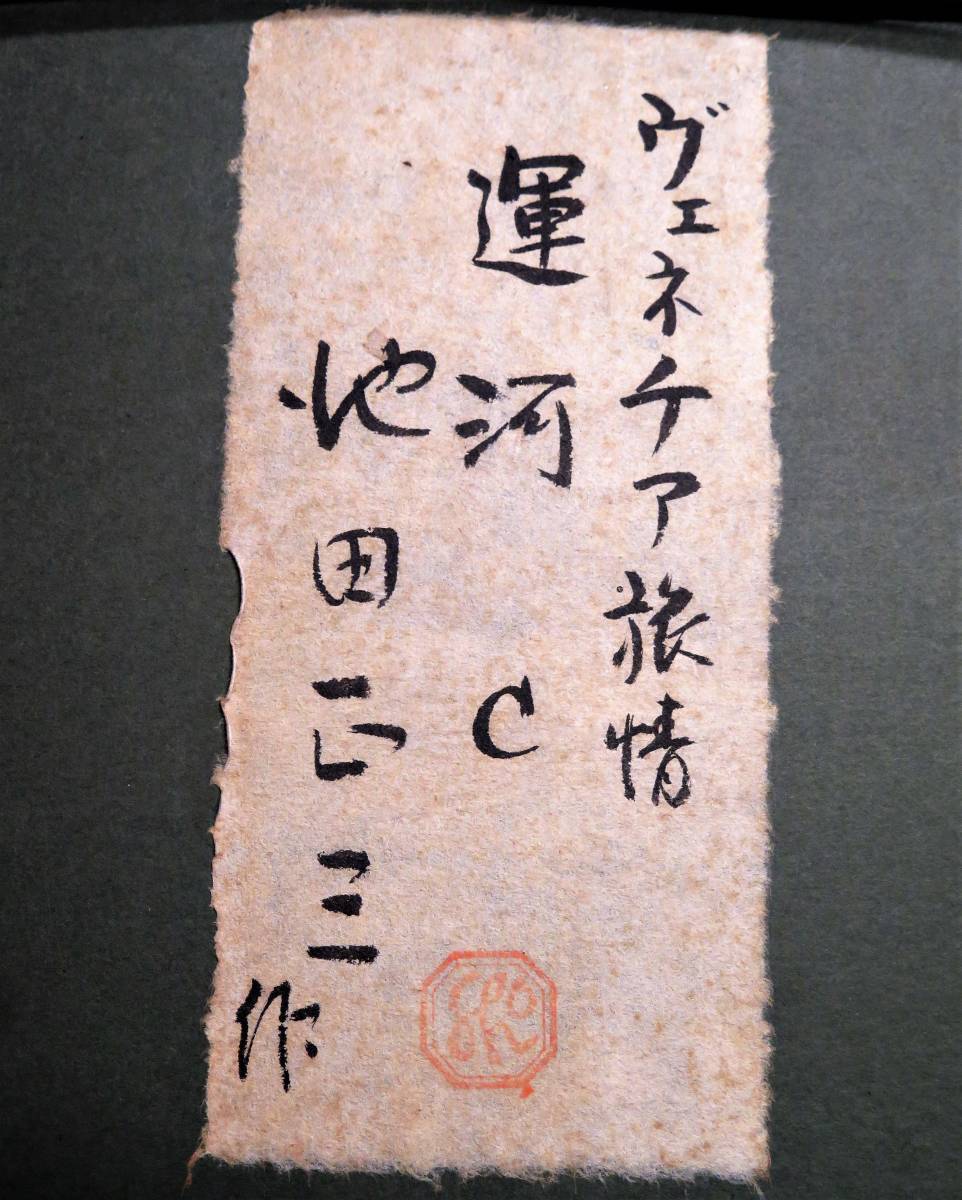 ヴェネチア旅情
運河 C
池田正三
作